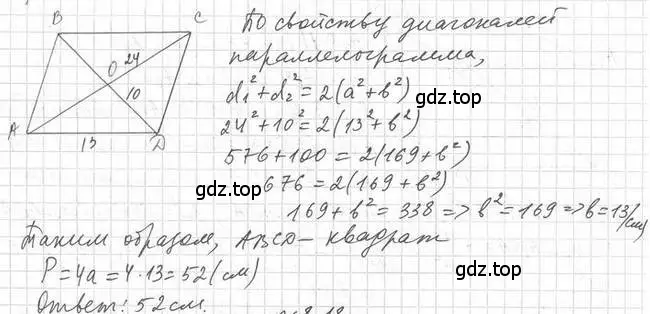 B C
24
O
10
A 13 D
По свойству диагоналей
параллелограмма,
d₁² + d₂² = 2(a² + b²)
gdz.top
24² + 10² = 2(13² + b²)
576 + 100 = 2(169 + b²)
gdz.top
676 = 2(169 + b²)
gdz.top
169 + b² = 338 => b² = 169 => b = 13 (см)
Таким образом, ABCD – квадрат
P = 4a = 4 · 13 = 52 (см)
gdz.top
Ответ: 52 см.